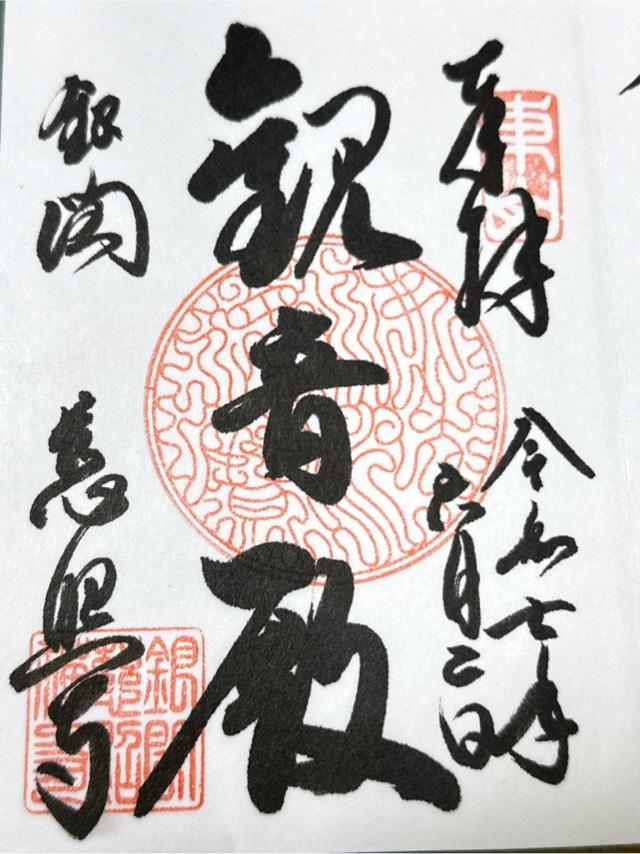 奉拝
東山
令和七年
六月二日
観音殿
銀閣
慈照寺
銀閣
慈照寺